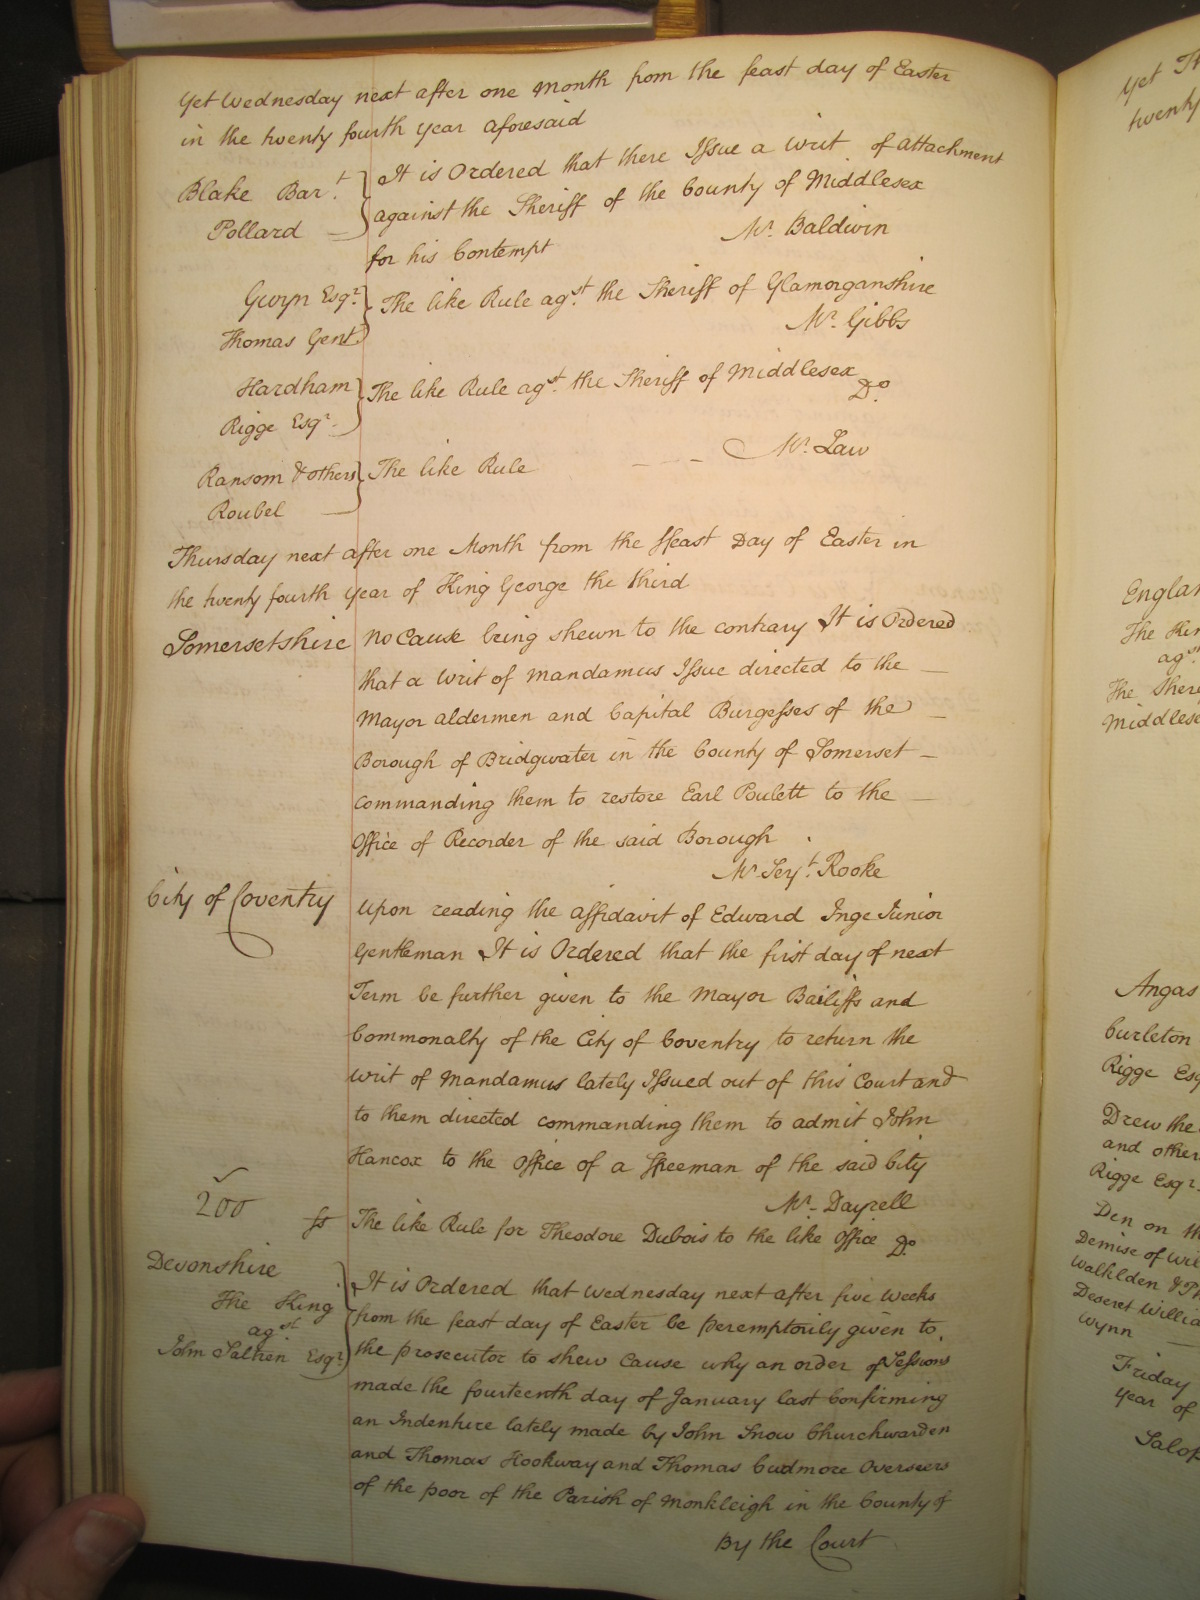 Yet Wednesday next after one Month from the feast day of Easter
in the twenty fourth year aforesaid
Blake Bart
Pollard
It is Ordered that there Issue a writ of attachment
against the Sheriff of the County of Middlesex
for his Contempt
Mr. Baldwin
Gwyn Esqr.
Thomas Gent
The like Rule agst. the Sheriff of Glamorganshire
Mr. Gibbs
Hardham
Rigge Esqr.
The like Rule agst. the Sheriff of Middlesex
Do.
Ransom & others
Roubel
The like Rule
Mr. Law
Thursday next after one Month from the ffeast Day of Easter in
the twenty fourth year of King George the third
Somersetshire
No Cause being shewn to the contrary It is Ordered
that a writ of Mandamus Issue directed to the
Mayor aldermen and Capital Burgesses of the
Borough of Bridgwater in the County of Somerset
commanding them to restore Earl Poulett to the
Office of Recorder of the said Borough
Mr. Serjt. Rooke
City of Coventry
Upon reading the affidavit of Edward Inge Junior
Gentleman It is Ordered that the first day of next
Term be further given to the Mayor Bailiffs and
Commonalty of the City of Coventry to return the
writ of Mandamus lately Issued out of this Court and
to them directed commanding them to admit John
Hancox to the Office of a ffreeman of the said City
Mr. Dayrell
200
ss
The like Rule for Theodore Dubois to the like Office
Do.
Devonshire
The King
agst.
John Saltren Esqr.
It is Ordered that Wednesday next after five Weeks
from the feast day of Easter be peremptorily given to
the prosecutor to shew Cause why an order of Sessions
made the fourteenth day of January last Confirming
an Indenture lately made by John Snow Churchwarden
and Thomas Hookway and Thomas Cudmore Overseers
of the poor of the Parish of Monkleigh in the County of
By the Court
Yet
twenty
England
The Kin
agst
The Sher
Middlese
Angas
Curleton
Rigge Esq
Drew the
and other
Rigge Esqr.
Den on
Demise of
Walklden
Deseret Willia
Wynn
Friday
Year of
Salop